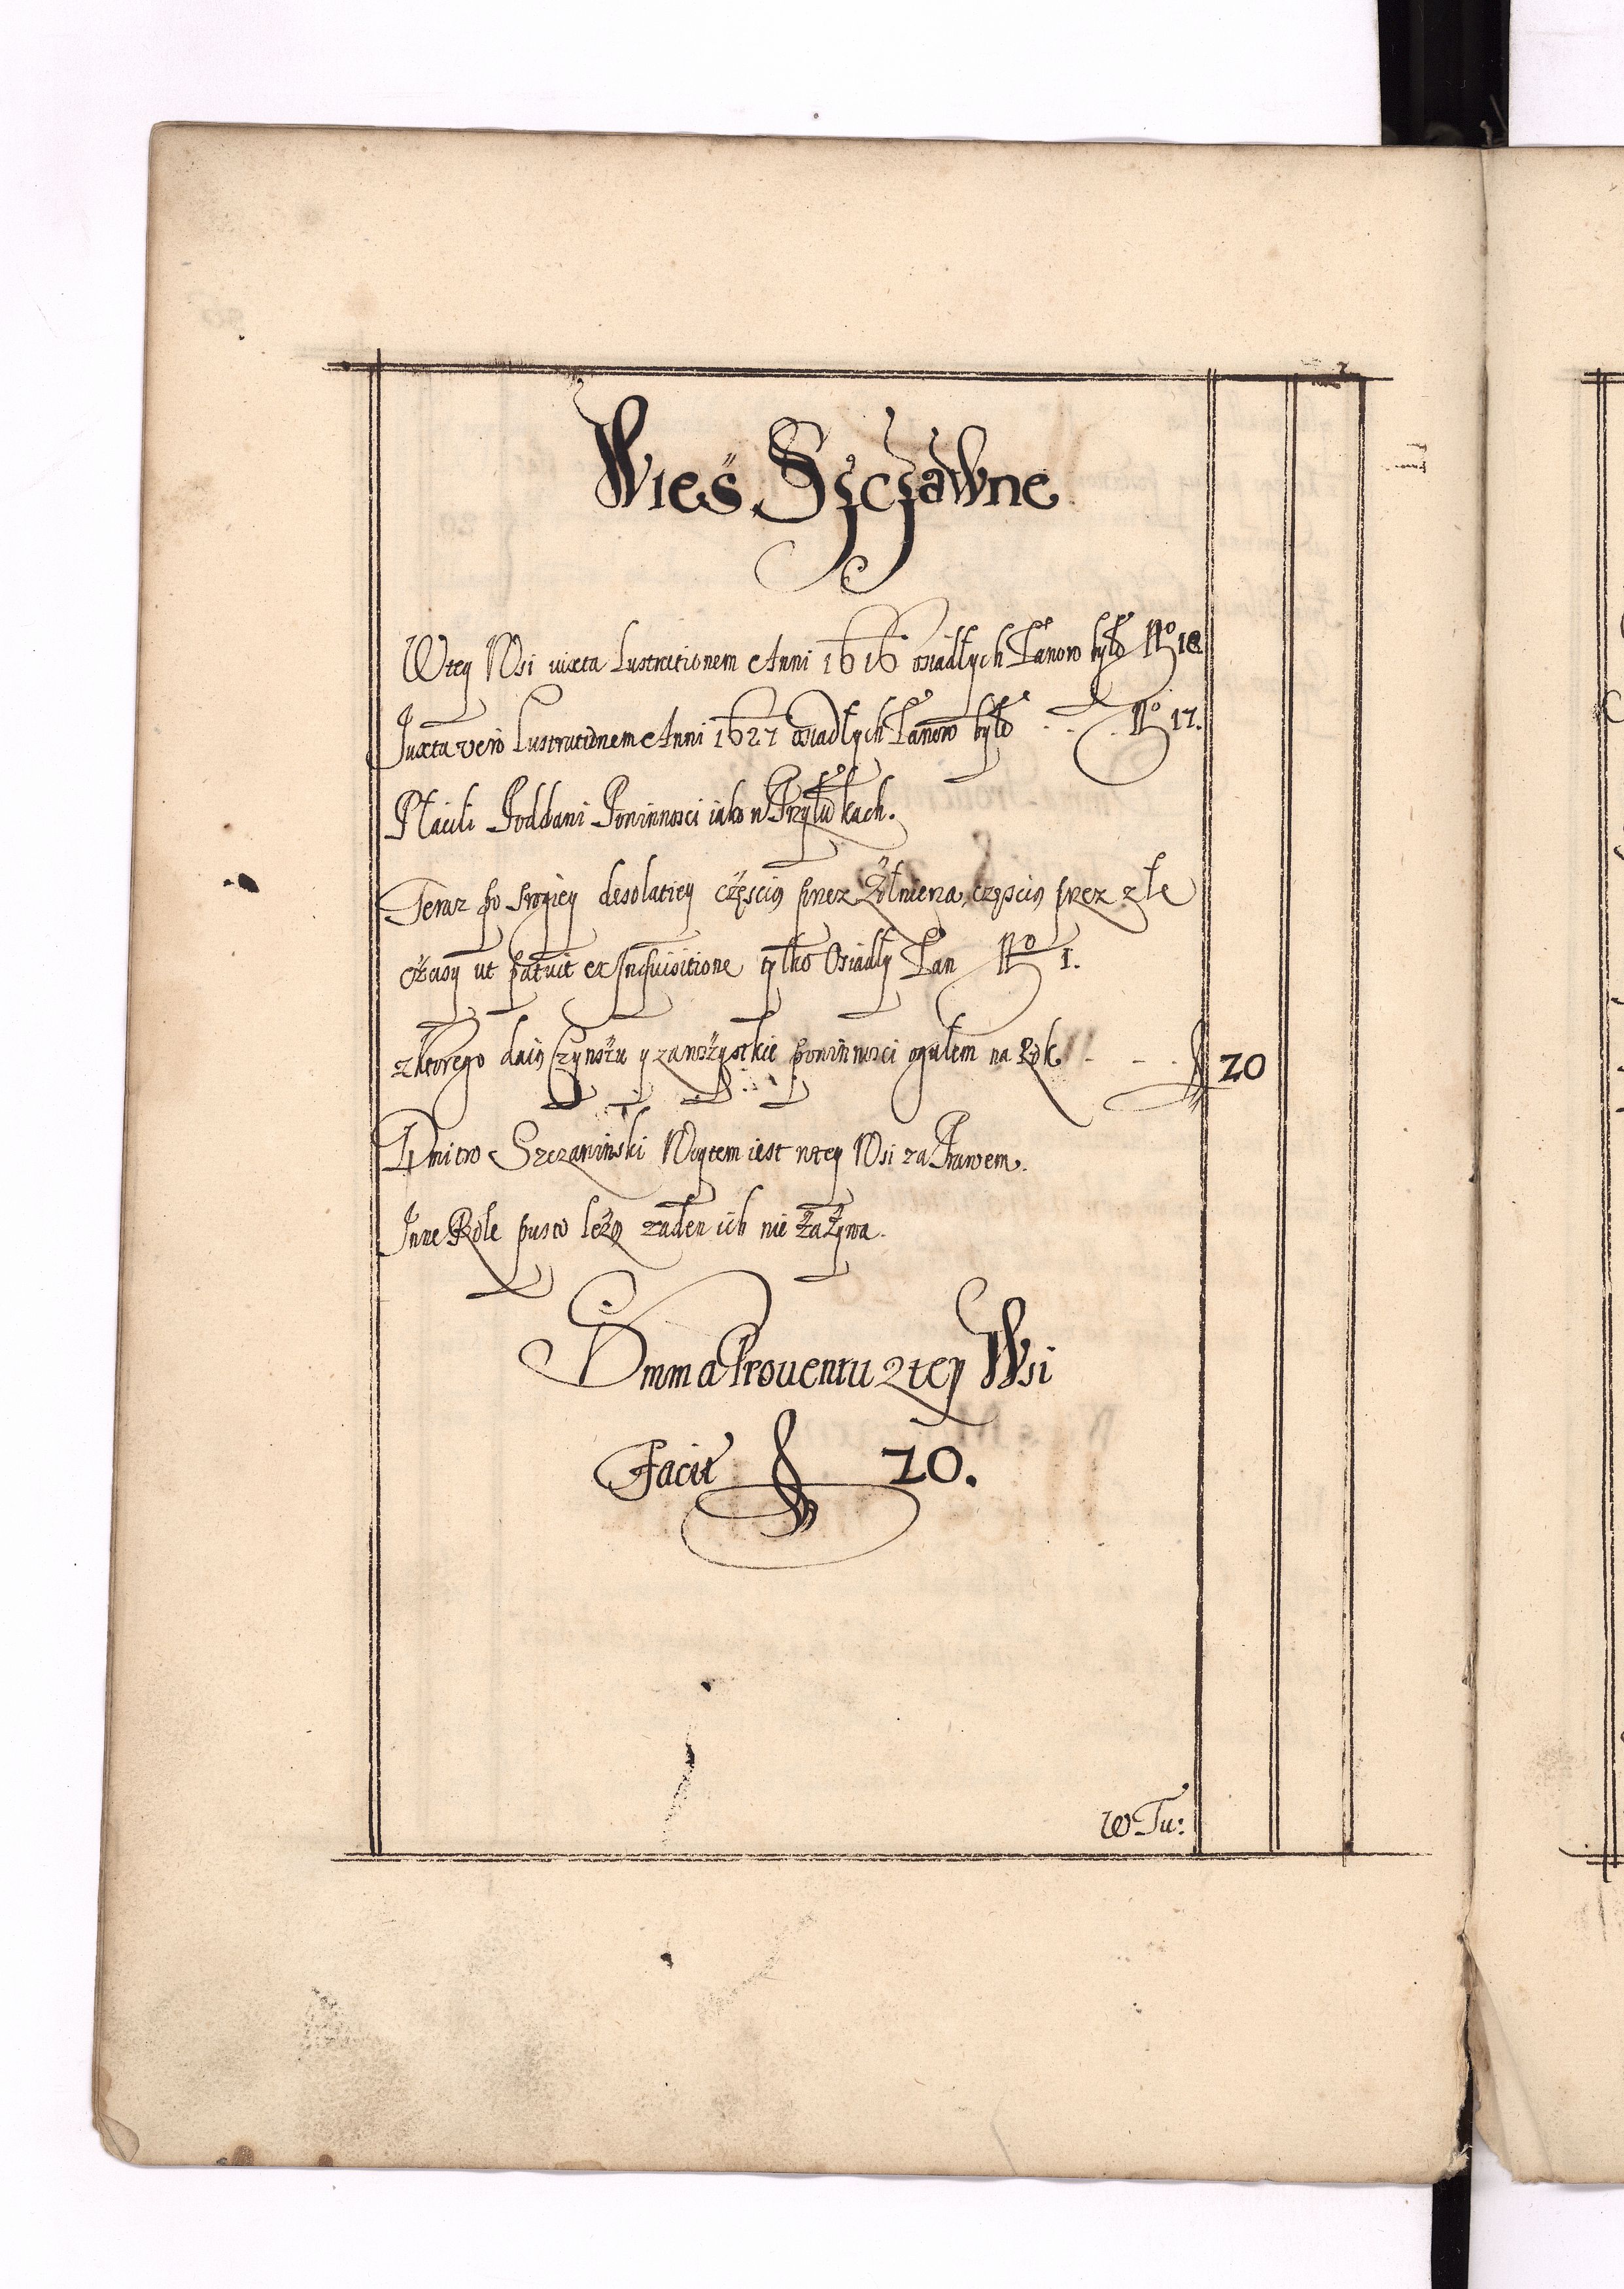 Wieś Szczawne
W tey Wsi iuxta Lustrationem Anni 1616 osiadłych Łanow było No 18
Juxta vero Lustrationem Anni 1627 osiadłych Łanow było No 17.
Płacili Poddani Powinnosci iako w Przybudkach.
Teraz po srogiey desolatiey częscią przez Żołnierza, częscią przez złe
czasy ut patuit ex Inquisitione tylko Osiadły Łan No 1.
z ktorego daią Czynszu y za wszystkie powinnosci ogułem na Rok f 20
Dmitro Szczawinski Woytem iest w tey Wsi za Prawem.
Inne Role pusto leżą żaden ich nie zażywa.
Summa Prouentu z tey Wsi
Facit f 20.
W Tu: